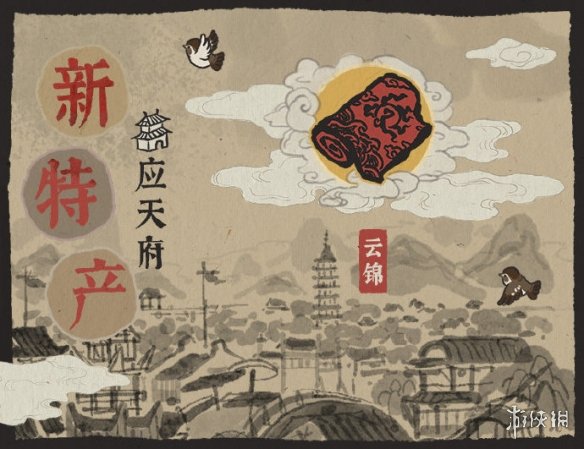 新特产
应天府
云锦
游侠网